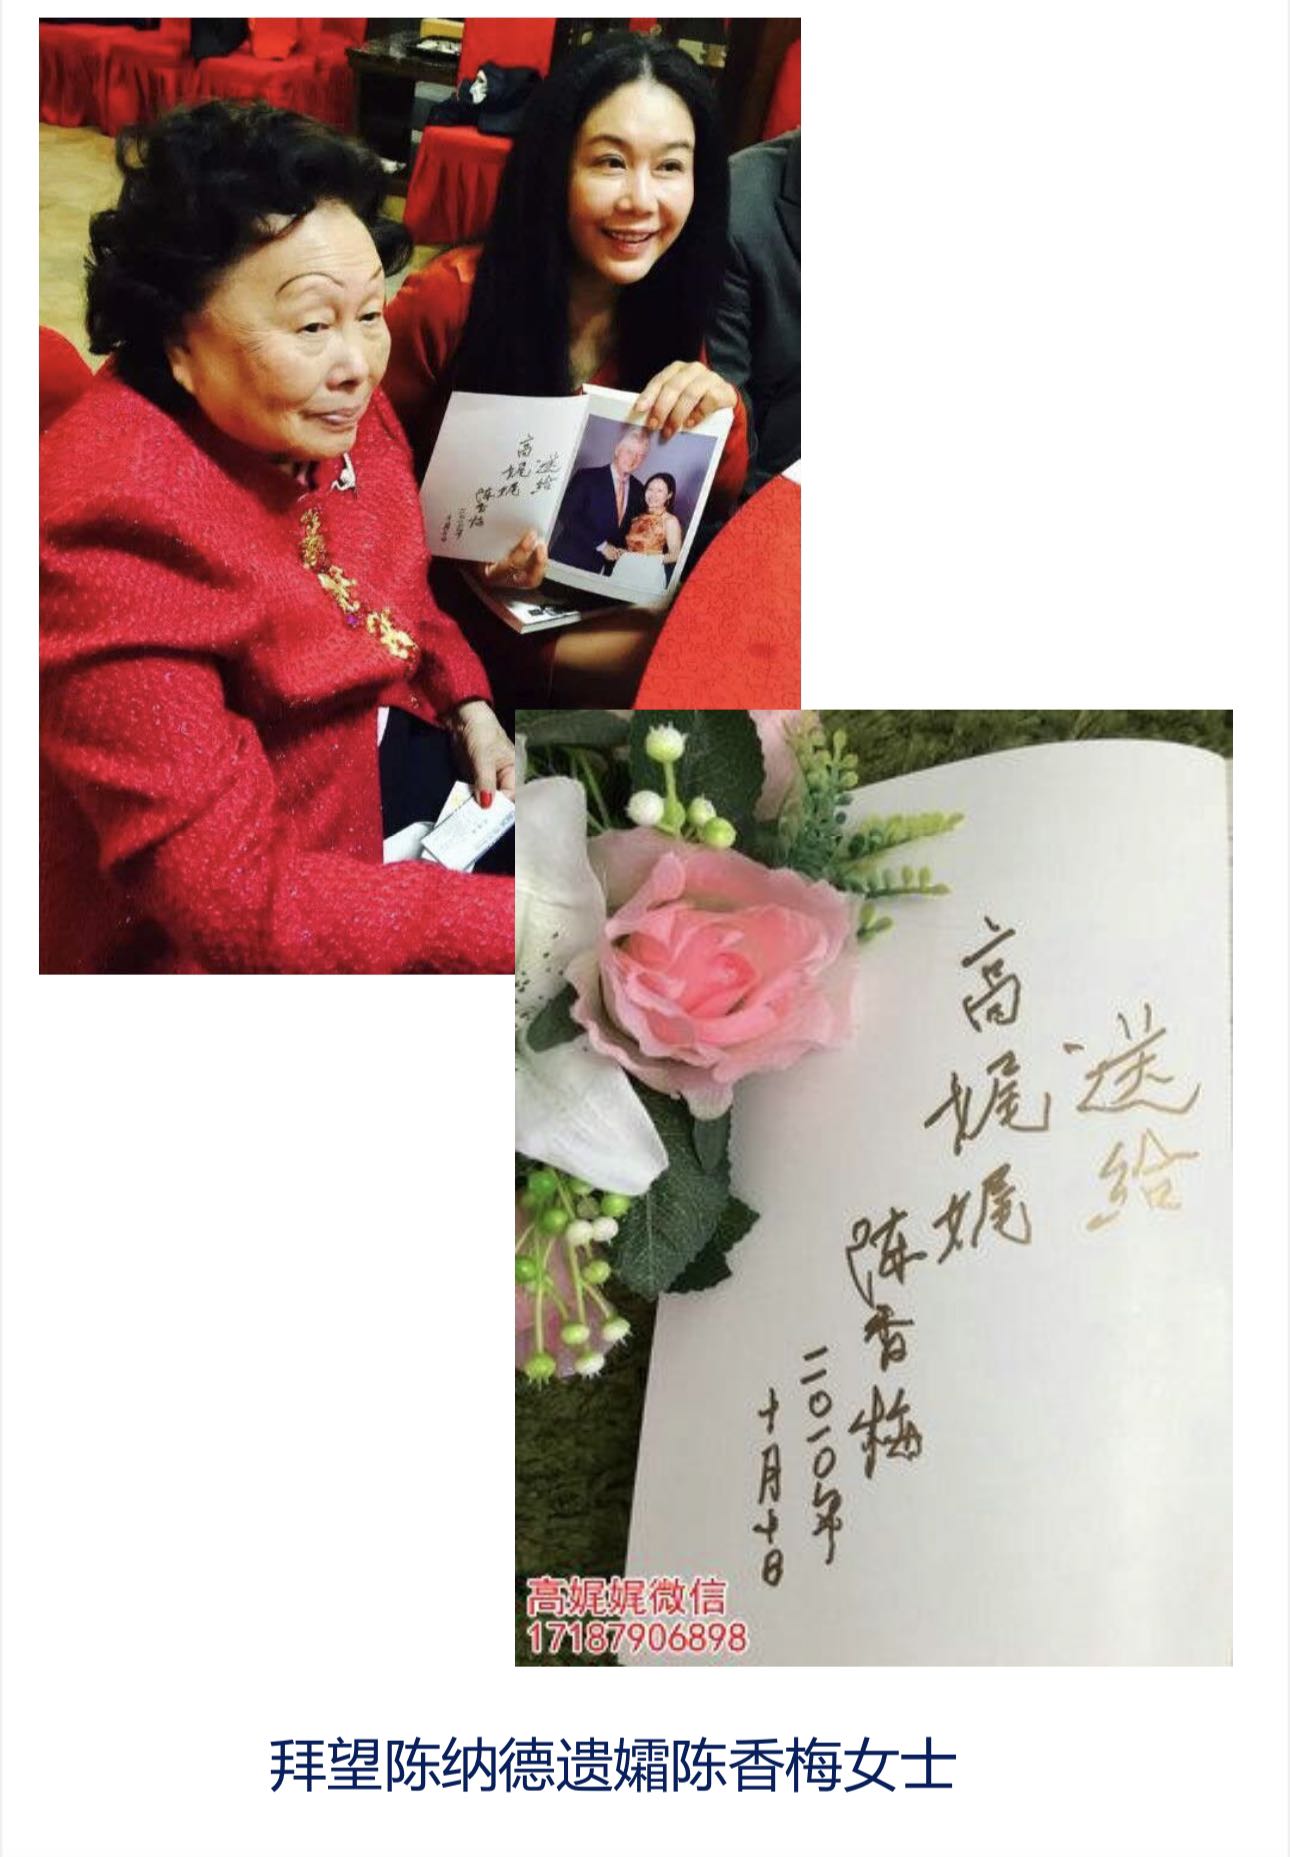 送给
高娓娓
陈香梅
二〇一〇年
十月十日
送给
高娓娓
陈香梅
二〇一〇年
十月十日
高娓娓微信
17187906898
拜望陈纳德遗孀陈香梅女士